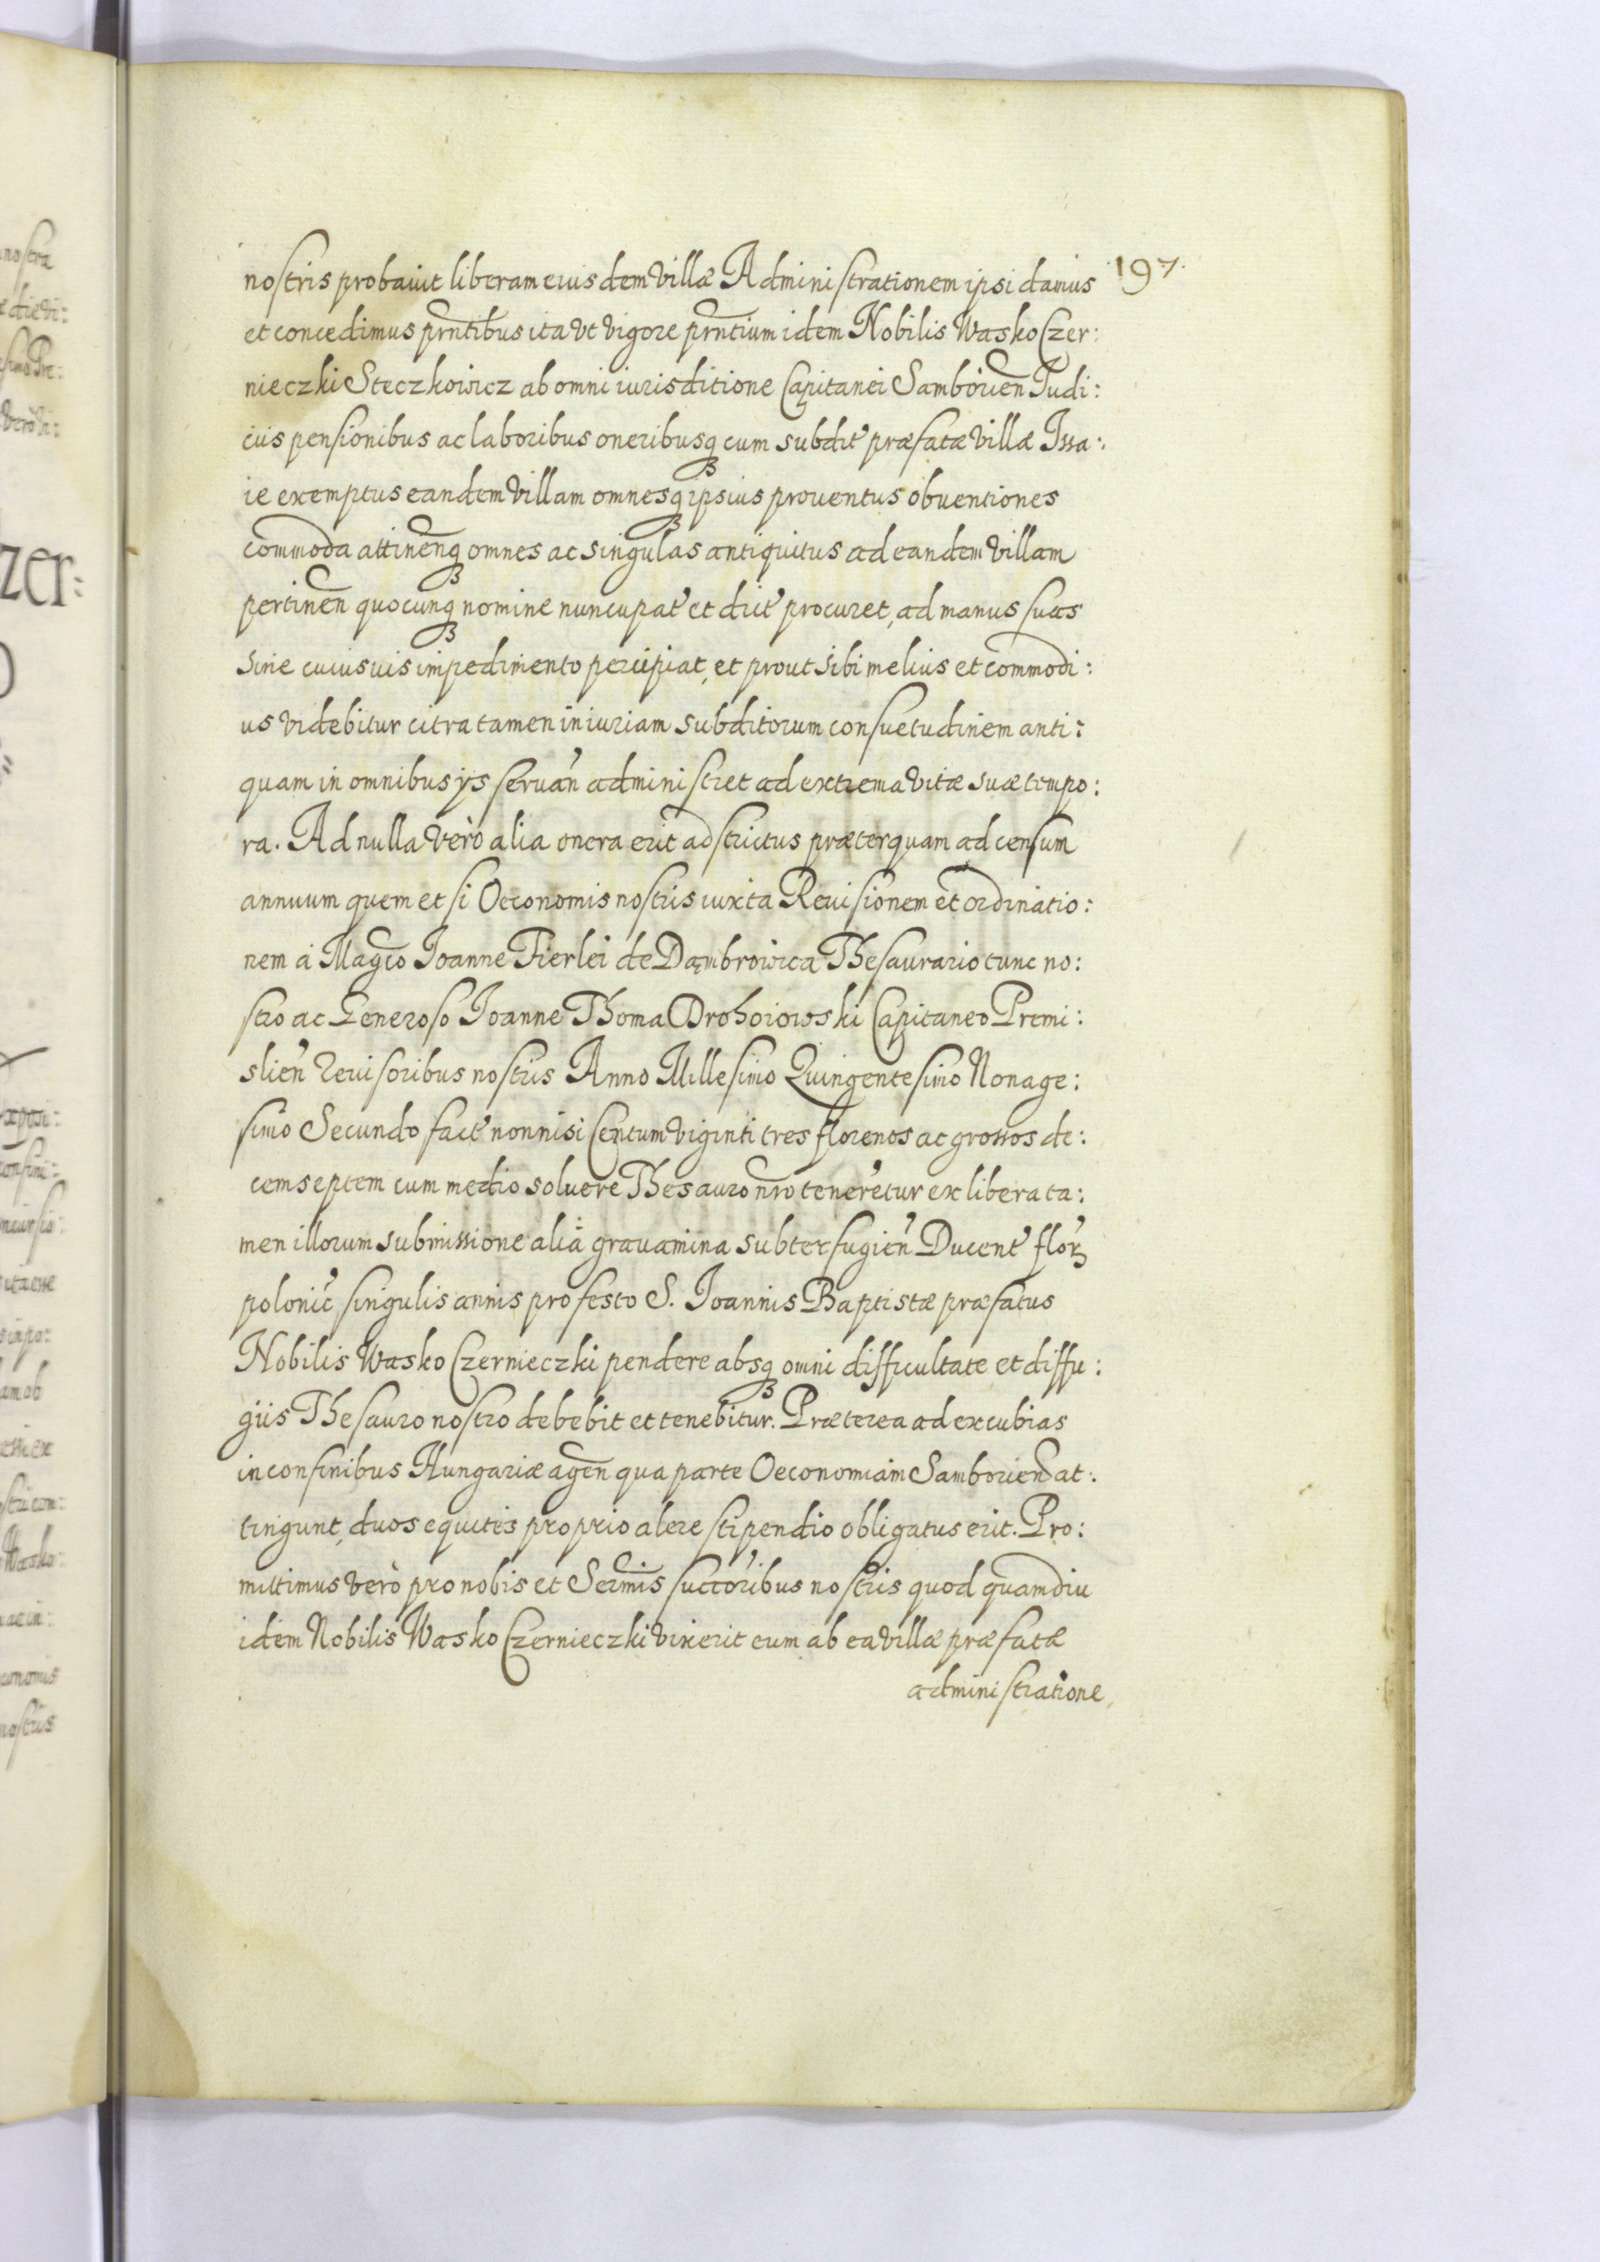 197.
nostris probauit liberam eiusdem villæ Administrationem ipsi damus
et concedimus pñtibus ita vt vigore pñtium idem Nobilis Wasko Czer:
nieczki Steczkowicz ab omni iurisditione Capitanei Samborien̄ Iudi:
ciis pensionibus ac laboribus oneribusq₃ cum subdit’ præfatæ villæ Issa:
ie exemptus eandem villam omnesq₃ ipsius prouentus obuentiones
commoda attinen̄q₃ omnes ac singulas antiquitus ad eandem villam
pertinen̄ quocunq₃ nomine nuncupat’ et dict’ procuret, ad manus suas
sine cuiusuis impedimento percipiat, et prout sibi melius et commodi:
us videbitur citra tamen iniuriam subditorum consuetudinem anti:
quam in omnibus ijs seruan’ administret ad extrema vitæ suæ tempo:
ra. Ad nulla verò alia onera erit adstrictus præterquam ad censum
annuum quem et si Oeconomis nostris iuxta Reuisionem et ordinatio:
nem à Magco Ioanne Fierlei de Dąmbrowica Thesaurario tunc no:
stro ac Generoso Ioanne Thoma Drohoiowski Capitaneo Premi:
slien’ reuisoribus nostris Anno Millesimo Quingentesimo Nonage:
simo Secundo fact’ nonnisi Centum viginti tres florenos ac grossos de:
cem septem cum medio soluere Thesauro nr̄o teneretur ex libera ta:
men illorum submissione alia gravamina subterfugien’ Ducent’ flor’
polonic’ singulis annis pro festo S. Ioannis Baptistæ præfatus
Nobilis Wasko Czernieczki pendere absq₃ omni difficultate et diffu:
giis Thesauro nostro debebit et tenebitur. Præterea ad excubias
in confinibus Hungariæ agen̄ qua parte Oeconomiam Samborien̄ at:
tingunt, duos equites proprio alere stipendio obligatus erit. Pro:
mittimus verò pro nobis et Sermis succoribus nostris quod quamdiu
idem Nobilis Wasko Czernieczki vixerit eum ab ea villæ præfatæ
administratione